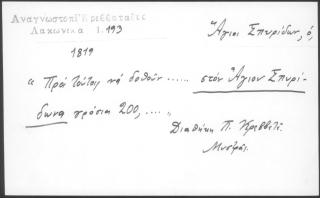 Ἀναγνωστοπ. Κρεββατᾶς
Λακωνικὰ 1.193
Ἅγιος Σπυρίδων, ὁ,
1819
« Πρὸ τούτοις νὰ δοθοῦν ...... στὸν Ἅγιον Σπυρί-
δωνα γρόσια 200, .... »
Διαθήκη Π. Κρεββατᾶ
Μυστρᾶς.